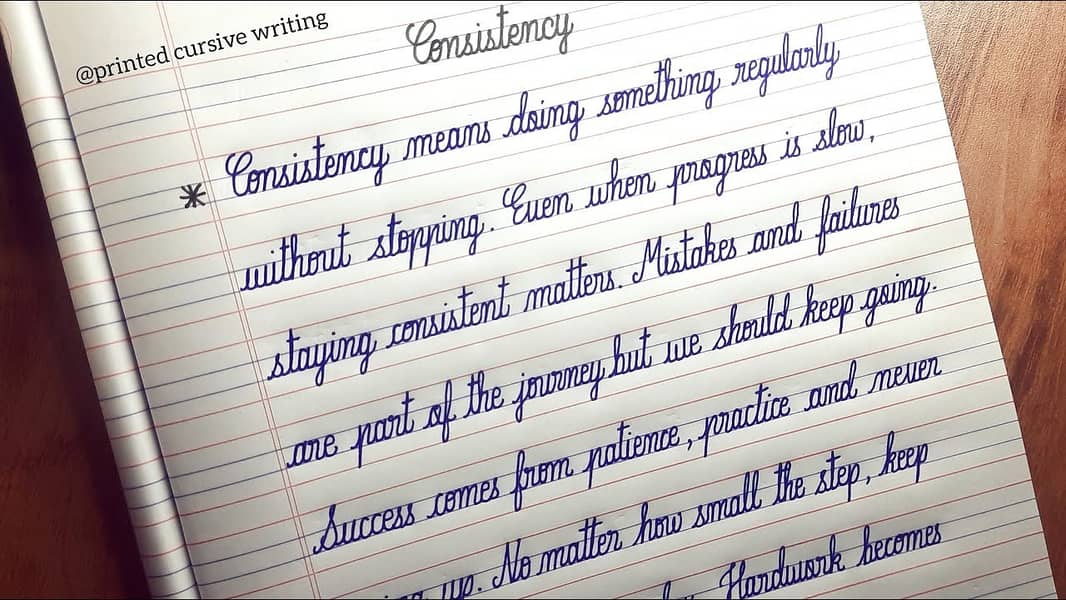 @printed cursive writing
Consistency
* Consistency means doing something regularly
without stopping. Even when progress is slow,
staying consistent matters. Mistakes and failures
are part of the journey but we should keep going.
Success comes from patience, practice and never
up. No matter how small the step, keep
Hardwork becomes